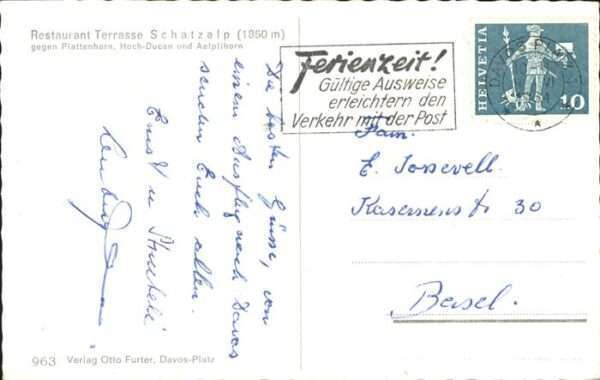 Restaurant Terrasse Schatzalp (1850 m)
gegen Plattenhorn, Hoch-Ducan und Aelplihorn
Ferienzeit!
Gültige Ausweise
erleichtern den
Verkehr mit der Post
HELVETIA
10
DAVOS PLATZ
Die besten Grüsse, von
einem Ausflug nach Davos
senden Euch allen.
Ernst u.
Fam.
E. Josevell.
Kasernenstr 30
Basel.
963 Verlag Otto Furter, Davos-Platz